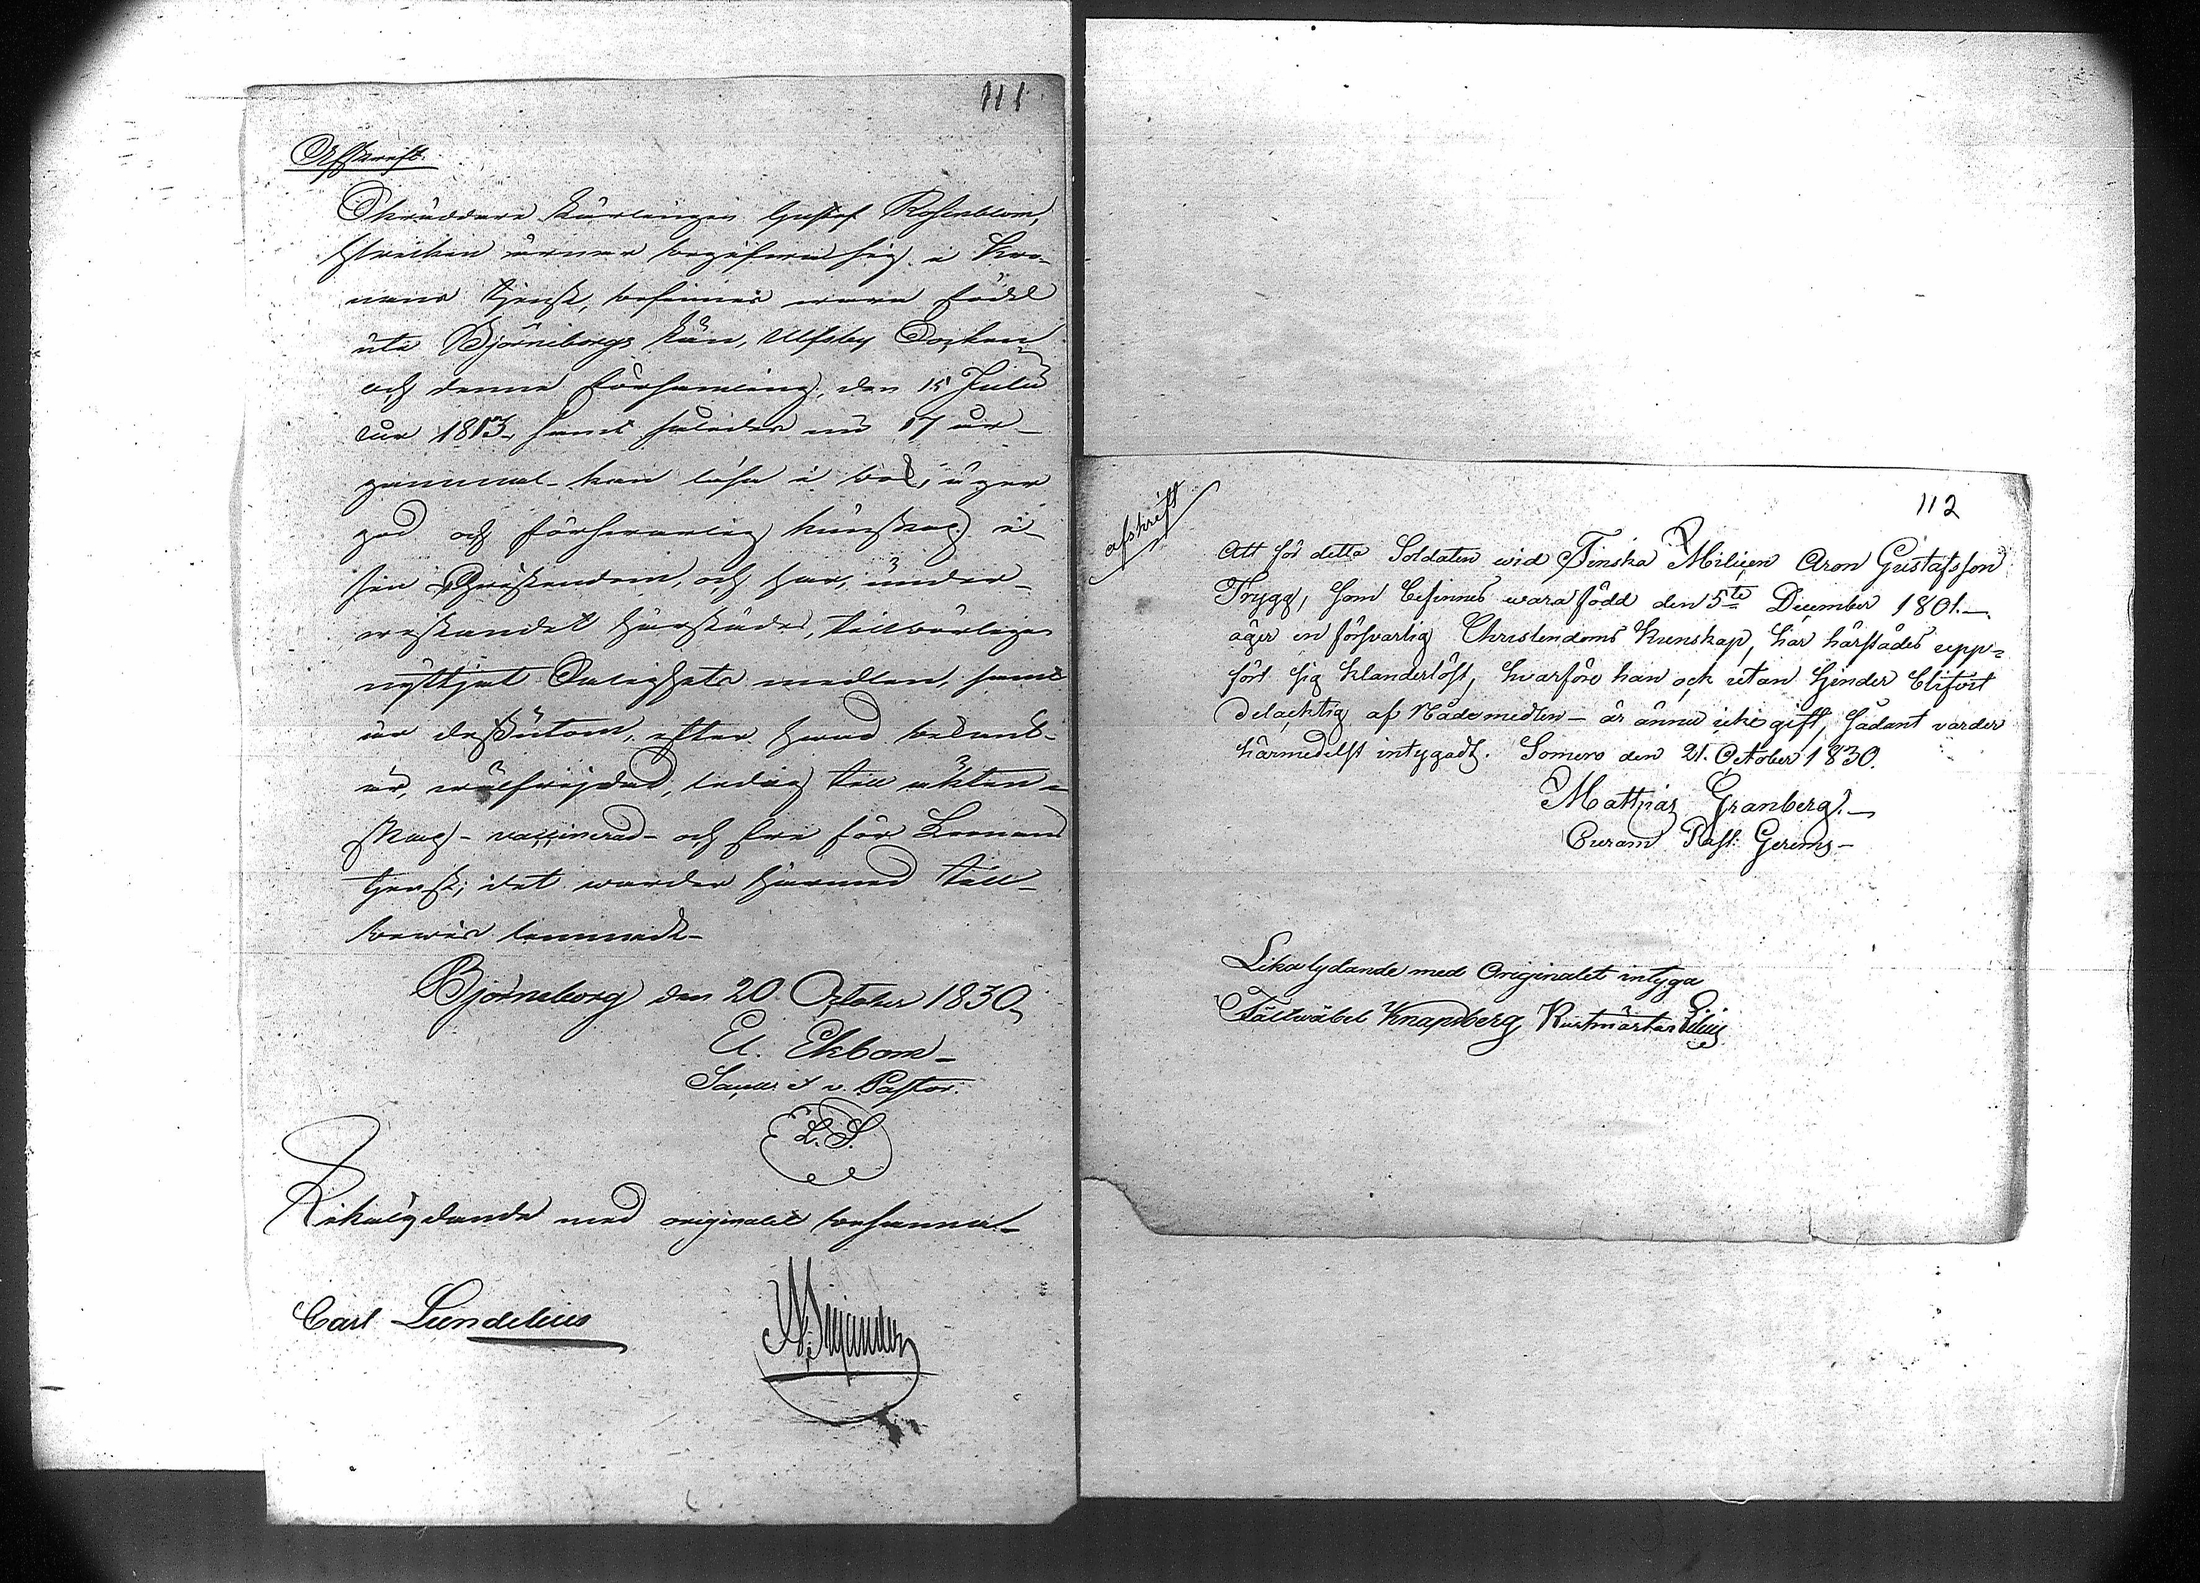 111
Afskrift.
Skräddare Lärlingen Gustaf Rosenblom,
hvilken ärnar begifva sig i Kro-
nans tjenst, befinnes vara född
uti Björneborgs Län, Ulfsby Socken
och denna församling, den 15 Julii
år 1813, samt således nu 17 år
gammal - kan läsa i bok, äger
god och försvarlig kunskap i
sin Christendom, och har, under
vistandet härstädes, tillbörligen
nyttjat Salighets medlen, samt
är dessutom, efter hvad bekant
är, välfrejdad, ledig till äkten-
skap - vaccinerad - och fri för Kronans
tjenst; det warder härmed till
bewis lemnadt -
Björneborg den 20 October 1830,
El. Ekbom -
Pastor.
L. S.
Likalydande med originalet befunnit -
Carl Lundelius
112
afskrift
Att för detta Soldaten wid Finska Milicen Aron Gustafsson
Trygg, som befinnes wara född den 5te December 1801. -
äger en försvarlig Christendoms Kunskap, har härstädes upp=
fört sig klanderlöst, hvarföre han ock utan hinder blifvit
delacktig af Nådemedlen - är ännu icke gift, sådant varder
härmedelst intygadt. Somero den 21. October 1830.
Mathias Granberg. -
Curam Past: Gerens -
Lika lydande med Originalet intyga
Fältwäbel Knapsberg Rustmästar